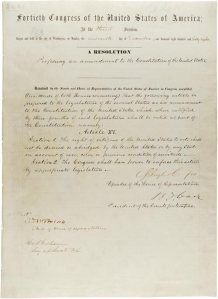 Fortieth Congress of the United States of America;
At the third Session,
A RESOLUTION
Proposing an amendment to the Constitution of the United States.
Resolved by the Senate and House of Representatives of the United States of America in Congress assembled,
(two-thirds of both Houses concurring) that the following article be
proposed to the legislatures of the several States as an amendment
to the Constitution of the United States, which, when ratified
by three fourths of said legislatures shall be valid as part of
the Constitution, namely:
Article XV.
Section 1. The right of citizens of the United States to vote shall
not be denied or abridged by the United States or by any State
on account of race, color, or previous condition of servitude.
Section 2. The Congress shall have power to enforce this article
by appropriate legislation.
Speaker of the House of Representatives
President of the Senate pro tempore
Clerk of House of Representatives